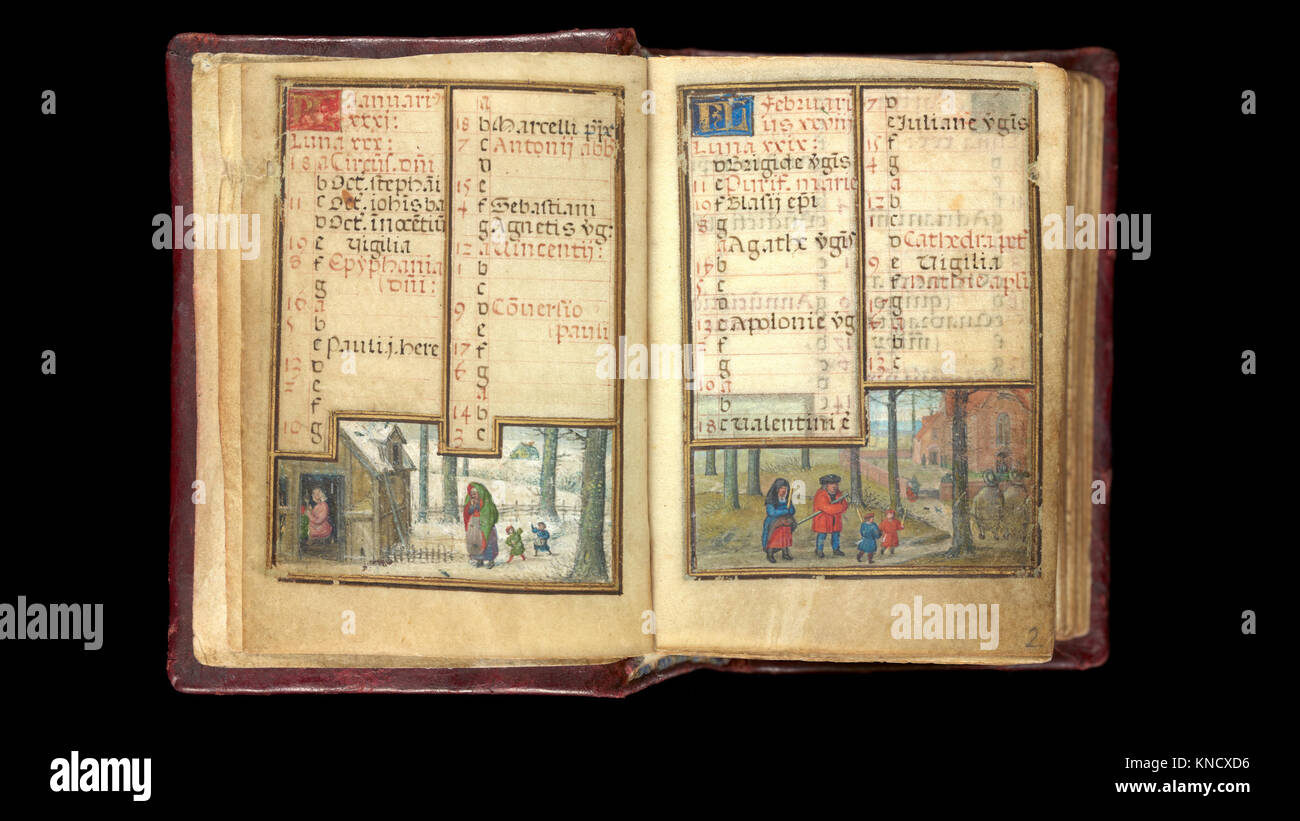 KL Januari9
xxxi:
Luna xxx:
18 a Circūs. dn̄i
b Oct. stephāi
11 c Oct. iohis ba
d Oct. inocētiū
19 e Vigilia
8 f Epyphania
g dn̄i:
16 a
5 b
c Pauli j. here
13 d
2 e
f
10 g
a
18 b Marcelli pp̄xi
7 c Antonij abb
d
15 e
4 f Sebastiani
g Agnetis v̄g:
12 a Vincentij:
1 b
c
9 d Cōversio
e pauli
17 f
6 g
a
14 b
3 c
KL Februari
us xxviij
Luna xxix:
d Brigide v̄gis
11 e Purif. marie
19 f Blasij ep̄i
8 g
a Agathe v̄gis
16 b
5 c
d
13 e Apolonie v̄g
2 f
g
10 a
b
18 c Valentini ē
7 d
e Juliane v̄gis
15 f
4 g
a
12 b
1 c
d Cathedra pet
9 e Vigilia
f Mathie apli
g
a
b
c
2
alamy
Image ID: KNCXD6
www.alamy.com